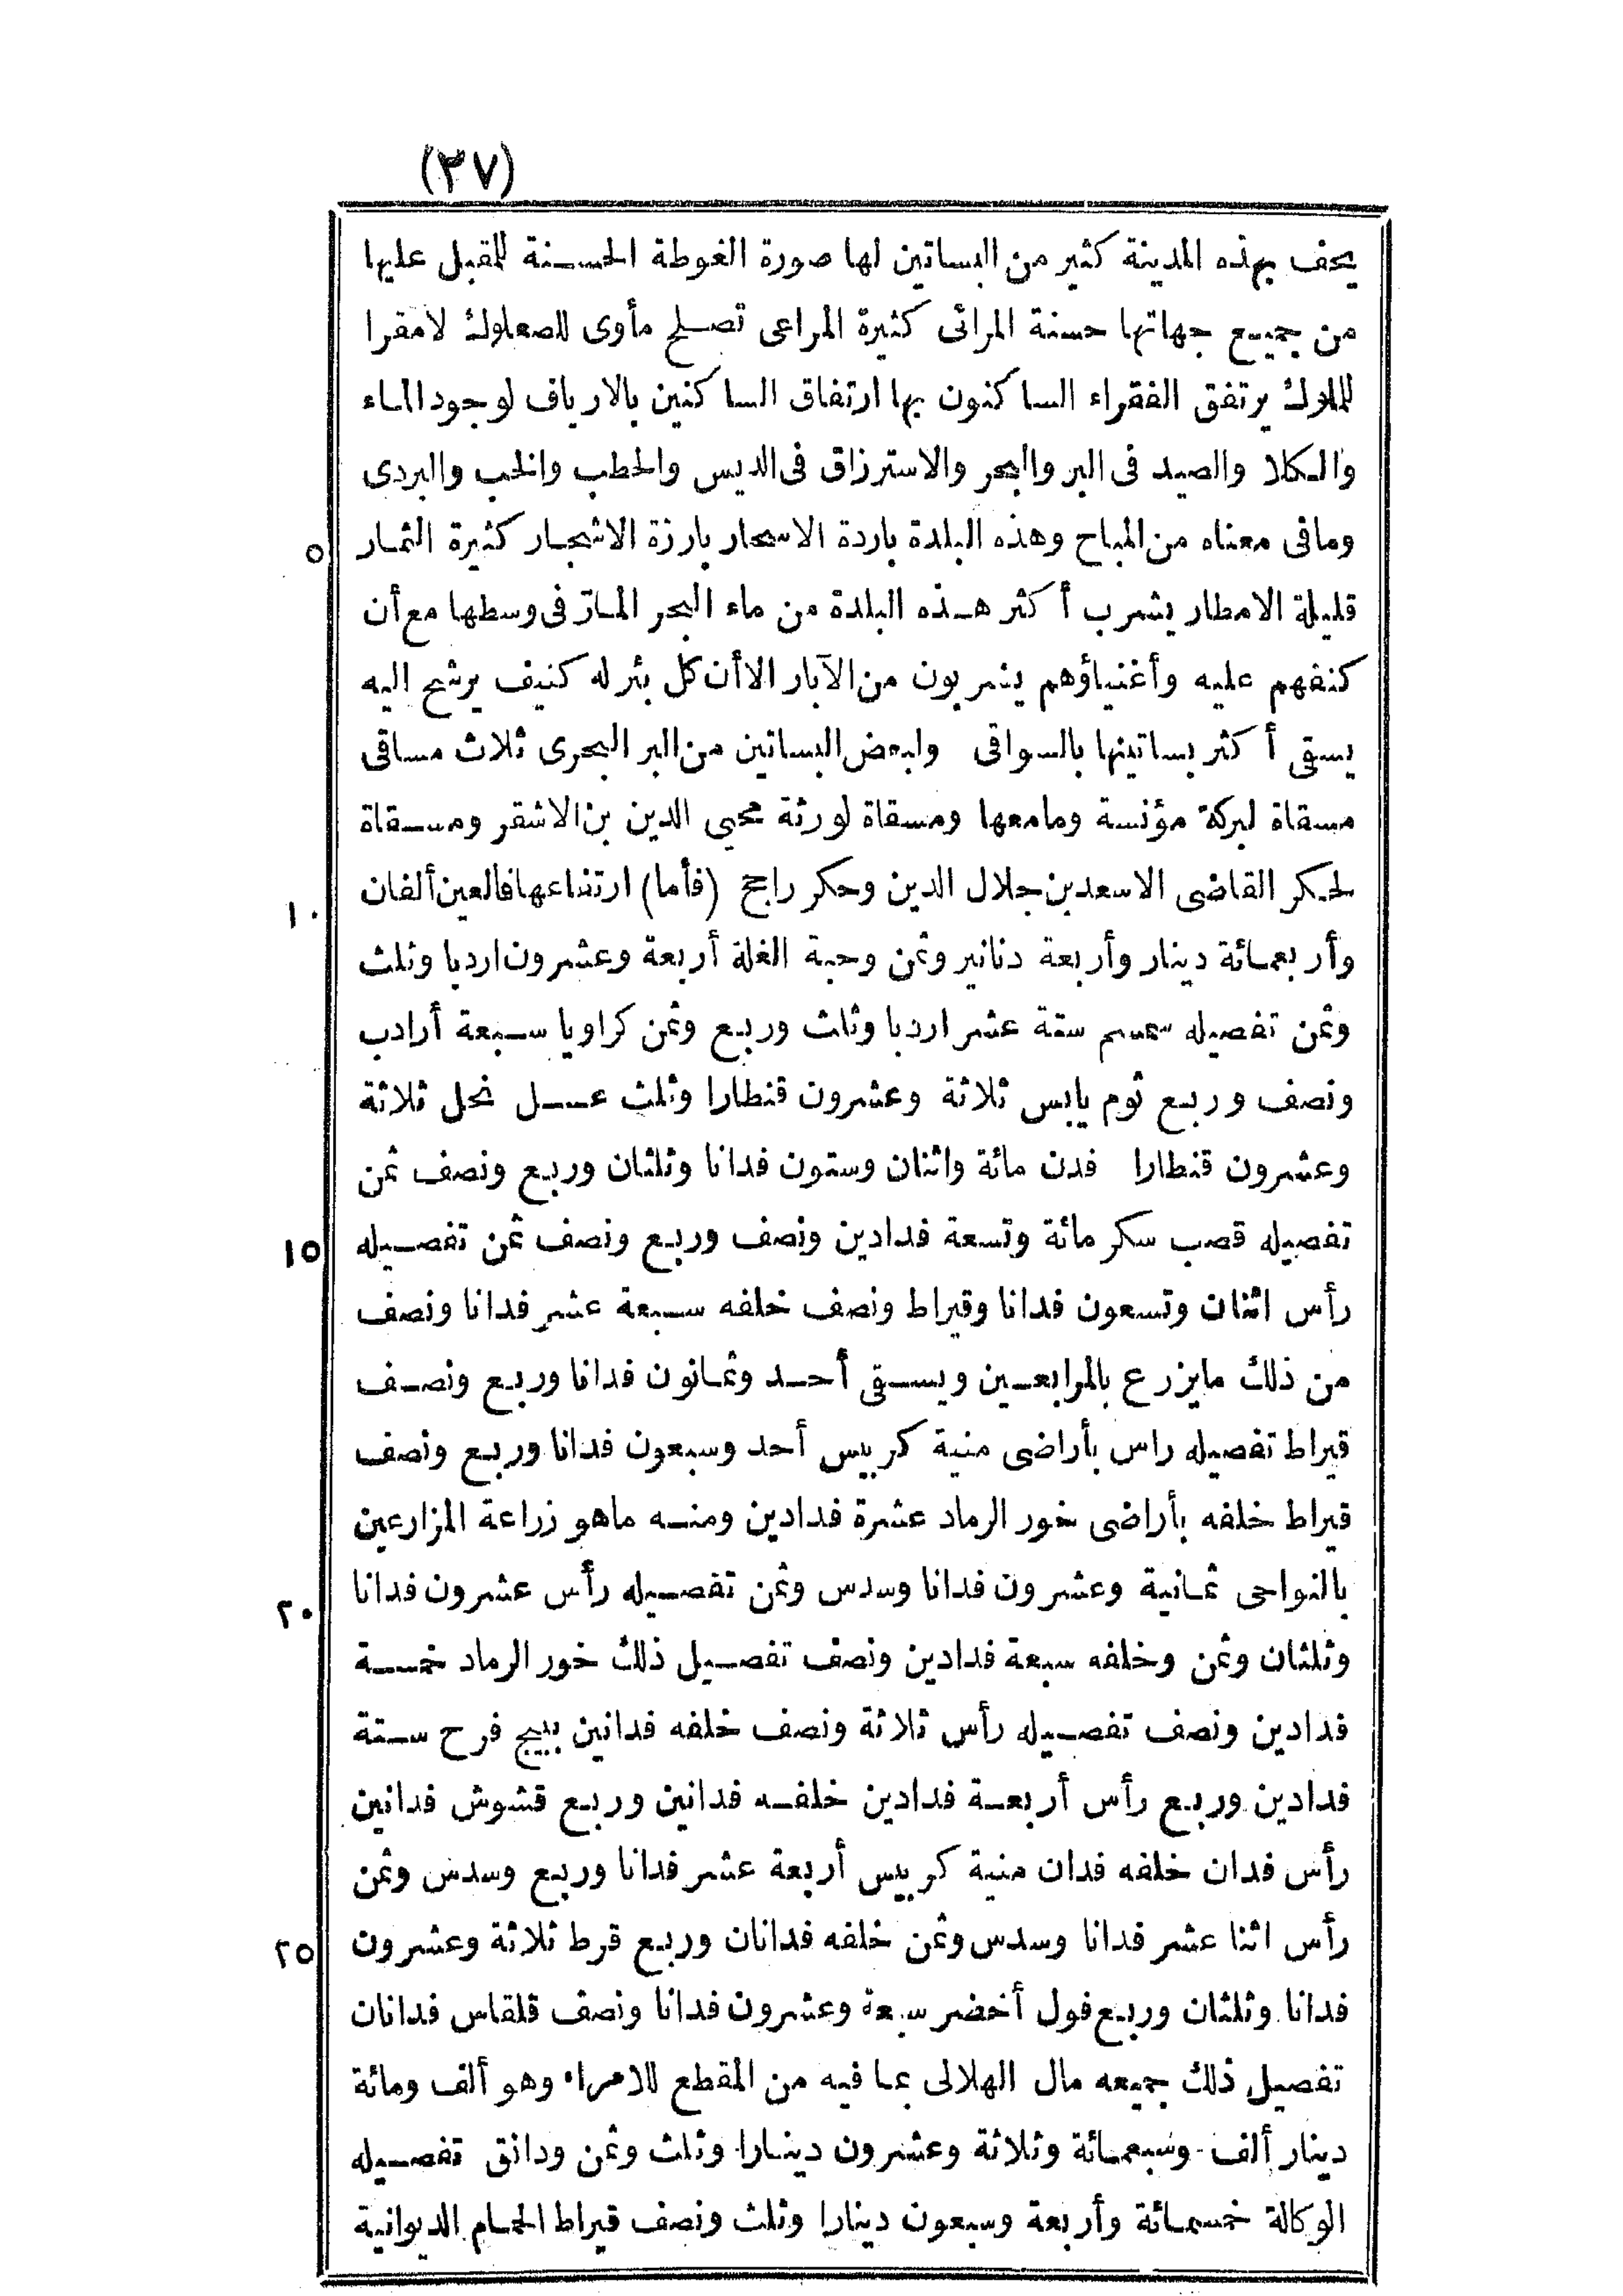 (٢٧)
يحف بهذه المدينة كثير من البساتين لها صورة الغوطة الحسنة للمقبل عليها
من جميع جهاتها حسنة المرائى كثيرة المراعى تصلح مأوى للصعلوك لامقرا
للملوك يرتفق الفقراء الساكنون بها ارتفاق الساكنين بالارياف لوجود الماء
والكلا والصيد فى البر والبحر والاسترزاق فى الديس والحطب والحب والبردى
ومافى معناه من المباح وهذه البلدة باردة الاسحار بارزة الاشجار كثيرة الثمار
٥
قليلة الامطار يشرب أكثر هذه البلدة من ماء البحر المارّ فى وسطها مع أن
كنفهم عليه وأغنياؤهم يشربون من الآبار الا أن كل بئر له كنيف يرشح اليه
يسقى أكثر بساتينها بالسواقى ولبعض البساتين من البر البحرى ثلاث مساقى
مسقاة لبركة مؤنسة ومامعها ومسقاة لورثة محيى الدين بن الاشقر ومسقاة
لحكر القاضى الاسعد بن جلال الدين وحكر راجح (فأما) ارتفاعها فالعين ألفان
١٠
وأربعمائة دينار وأربعة دنانير وثمن وحبة الغلة أربعة وعشرون اردبا وثلث
وثمن تفصيله سمسم ستة عشر اردبا وثلث وربع وثمن كراويا سبعة أرادب
ونصف وربع ثوم يابس ثلاثة وعشرون قنطارا وثلث عسل نحل ثلاثة
وعشرون قنطارا فدن مائة واثنان وستون فدانا وثلثان وربع ونصف ثمن
تفصيله قصب سكر مائة وتسعة فدادين ونصف وربع ونصف ثمن تفصيله
١٥
رأس اثنان وتسعون فدانا وقيراط ونصف خلفه سبعة عشر فدانا ونصف
من ذلك مايزرع بالمرابعين ويسقى أحد وثمانون فدانا وربع ونصف
قيراط تفصيله راس بأراضى منية كربيس أحد وسبعون فدانا وربع ونصف
قيراط خلفه بأراضى خور الرماد عشرة فدادين ومنه ماهو زراعة المزارعين
بالنواحى ثمانية وعشرون فدانا وسدس وثمن تفصيله رأس عشرون فدانا
٢٠
وثلثان وثمن وخلفه سبعة فدادين ونصف تفصيل ذلك خور الرماد خمسة
فدادين ونصف تفصيله رأس ثلاثة ونصف خلفه فدانين ببيج فرح ستة
فدادين وربع رأس أربعة فدادين خلفه فدانين وربع قشوش فدانين
رأس فدان خلفه فدان منية كربيس أربعة عشر فدانا وربع وسدس وثمن
رأس اثنا عشر فدانا وسدس وثمن خلفه فدانان وربع قرط ثلاثة وعشرون
٢٥
فدانا وثلثان وربع فول أخضر سبعة وعشرون فدانا ونصف قلقاس فدانان
تفصيل ذلك جميعه مال الهلالى بما فيه من المقطع للامراء وهو ألف ومائة
دينار ألف وسبعمائة وثلاثة وعشرون دينارا وثلث وثمن ودانق تفصيله
الوكالة خمسمائة وأربعة وسبعون دينارا وثلث ونصف قيراط الحمام الديوانية